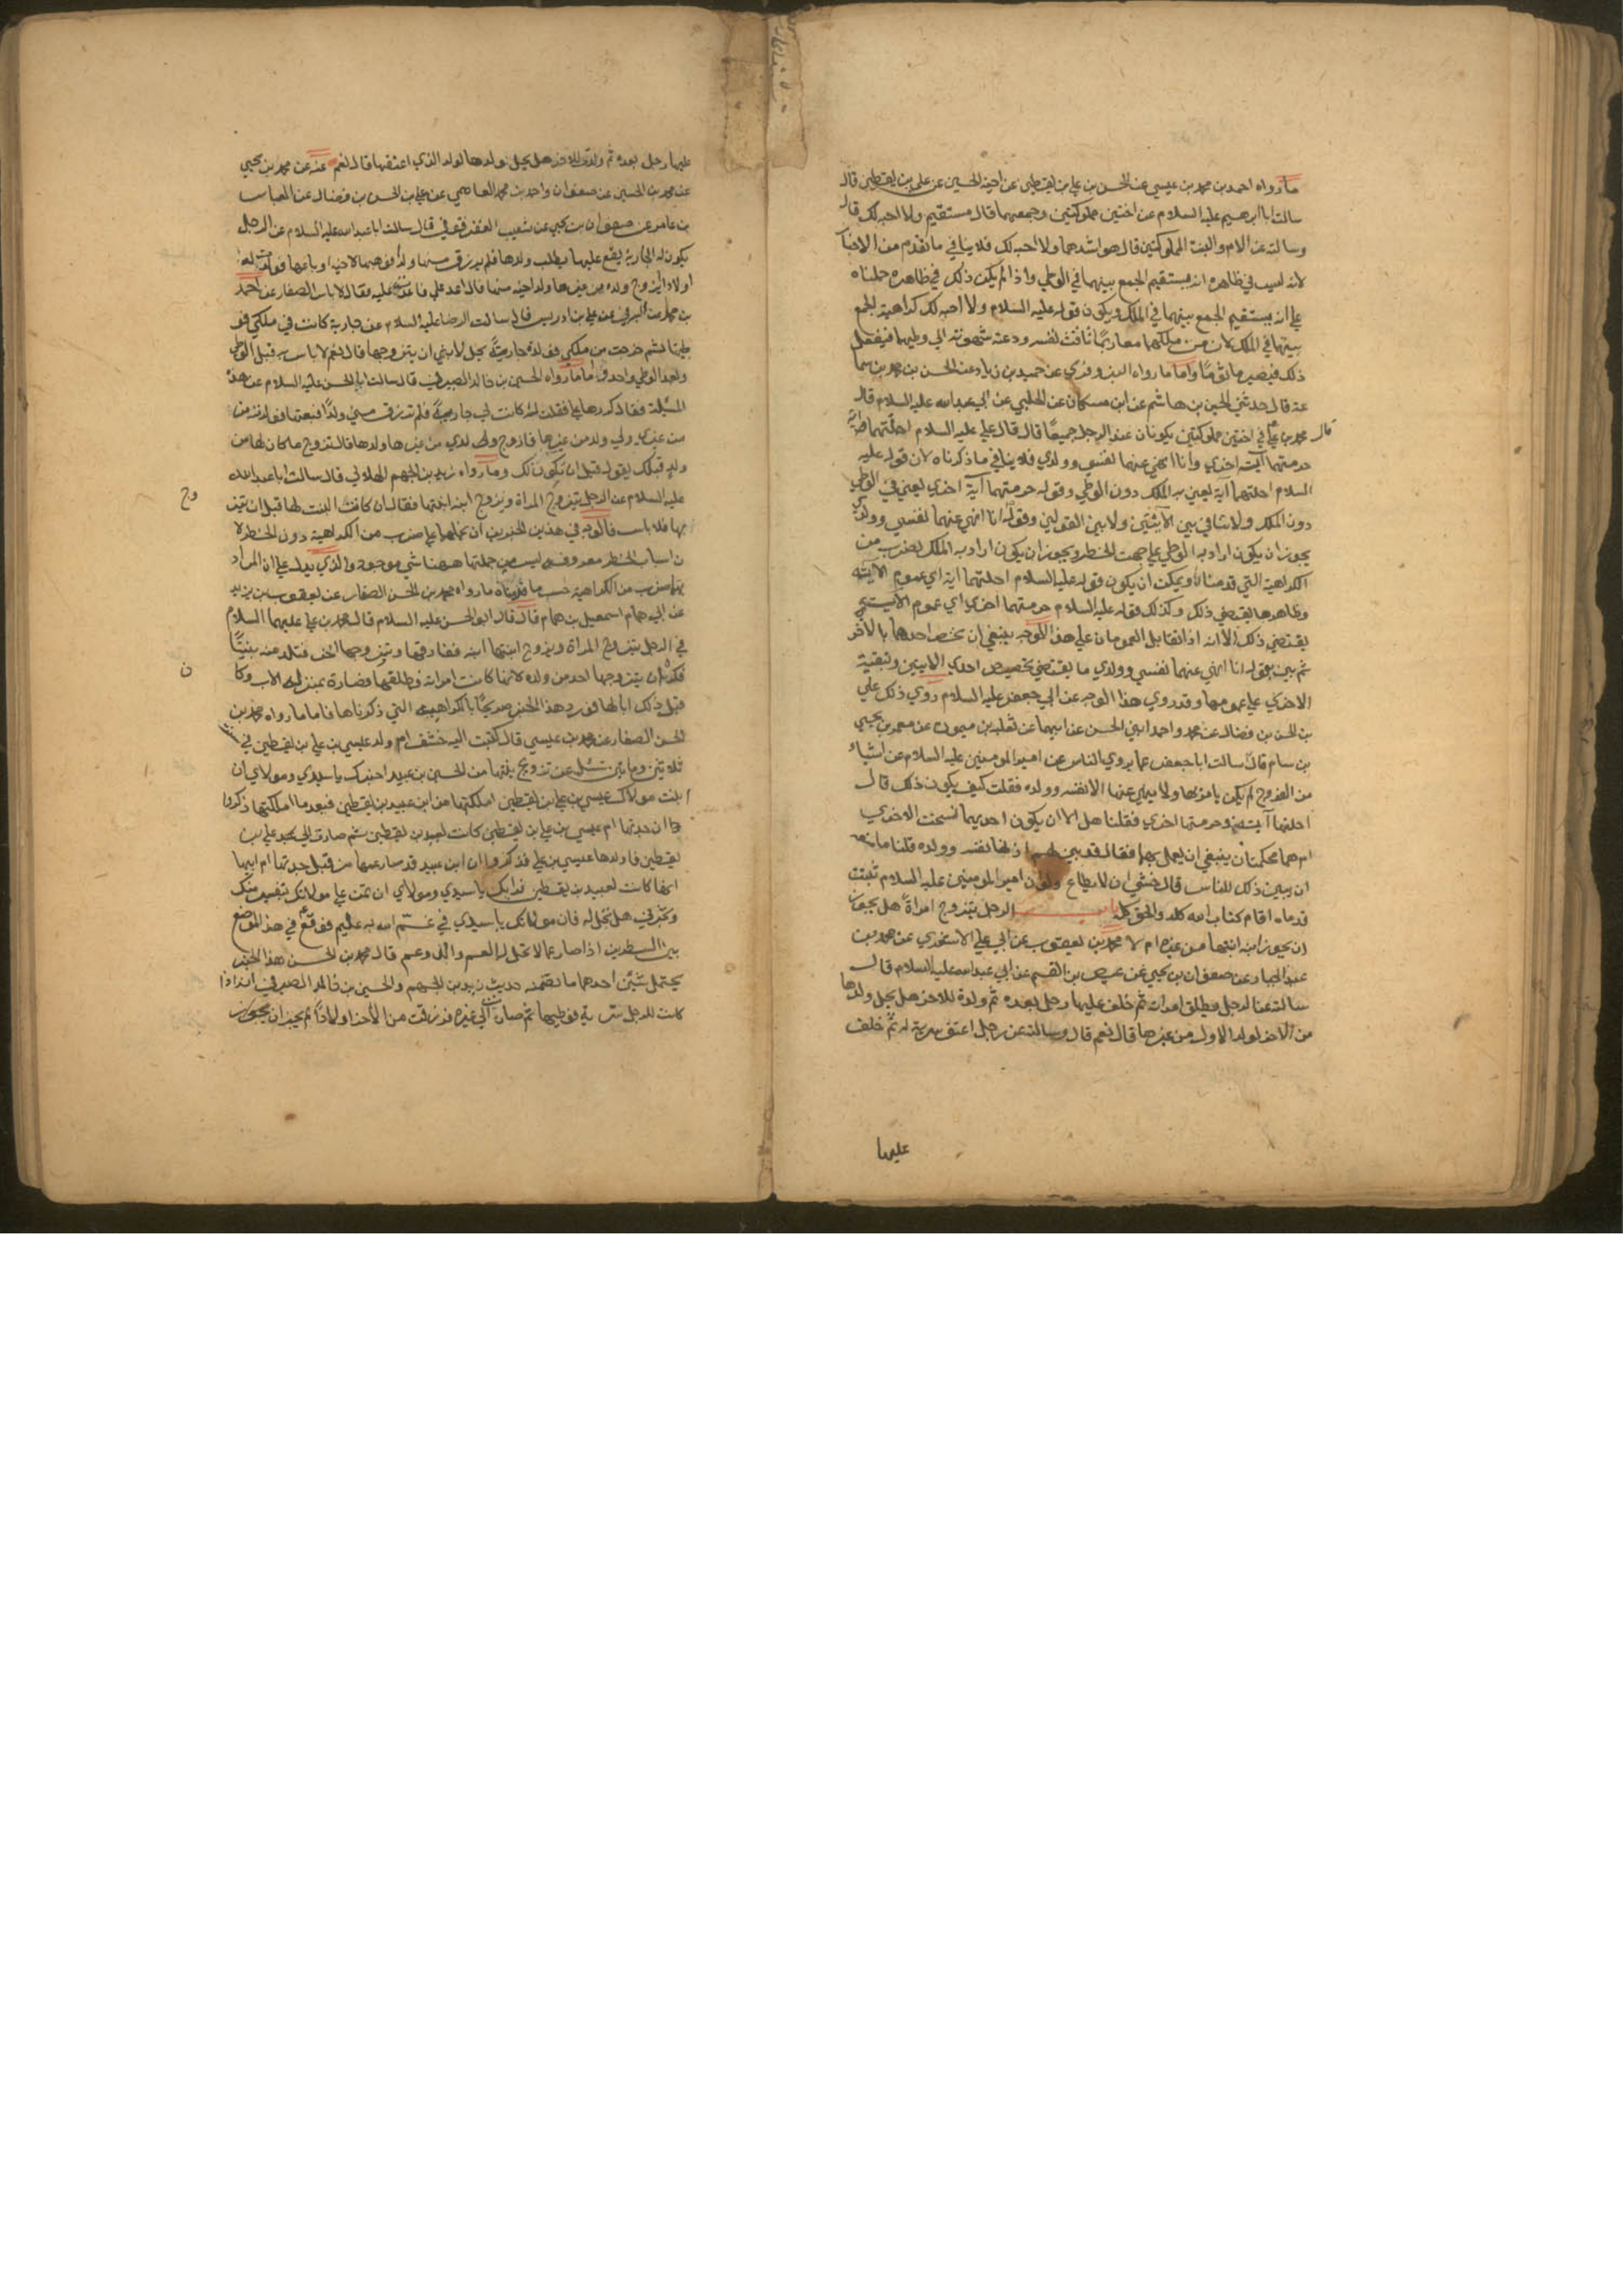 ما رواه احمد بن محمد بن عيسى عن الحسن بن علي بن يقطين عن اخيه الحسين عن علي بن يقطين قال
سالت ابا ابرهيم عليه السلام عن اختين مملوكتين وجمعهما قال مستقيم ولا احبه لك قال
وسالته عن الام والبنت المملوكتين قال هو اشدهما ولا احبه لك فلا ينافي ما تقدم من الاخبار
لانه ليس في ظاهره انه مستقيم الجمع بينهما في الوطي واذا لم يكن ذلك في ظاهره حملناه
علي انه يستقيم الجمع بينهما في الملك ويكون قوله عليه السلام ولا احبه لك كراهية الجمع
بينهما في الملك لان من ملكهما معا ربما تاقت نفسه ودعته شهوته الي وطيهما فيفعل
ذلك فيصير ماثوما واما ما رواه البزوفري عن حميد بن زياد عن الحسن بن محمد بن سما
عة قال حدثني الحسين بن هاشم عن ابن مسكان عن الحلبي عن ابي عبد الله عليه السلام قال
قال محمد بن علي في اختين مملوكتين يكونان عند الرجل جميعا قال قال علي عليه السلام احلتهما اية
حرمتهما آية اخري وانا انهي عنهما نفسي وولدي فلا ينافي ما ذكرناه لان قوله عليه
السلام احلتهما آية يعني به الملك دون الوطي وقوله حرمتهما آية اخري يعني في الوطي
دون الملك ولا تنافي بين الآيتين ولا بين القولين وقوله انا انهي عنهما نفسي وولدي
يجوز ان يكون اراد به الوطي علي جهت الحظر ويجوز ان يكون اراد به الملك لضرب من
الكراهية التي قدمناه ويمكن ان يكون قوله عليه السلام احلتهما اية اي عموم الآية
وظاهرها يقتضي ذلك وكذلك قوله عليه السلام حرمتهما اخري اي عموم الآية
يقتضي ذلك الا انه اذا تقابل العمومان علي هذا الوجه ينبغي ان يخص احدهما بالآخر
ثم بين بقوله انا انهي عنهما نفسي وولدي ما يقتضي تخصيص احدي الايتين وتبقية
الاخري علي عمومها وقد روي هذا الوجه عن ابي جعفر عليه السلام روي ذلك علي
بن الحسن بن فضال عن محمد واحمد ابني الحسن عن ابيهما عن ثعلبة بن ميمون عن معمر بن يحيي
بن سام قال سالت ابا جعفر عما يروي الناس عن امير المومنين عليه السلام عن اشياء
من الفروج لم يكن يامر بها ولا ينهي عنها الا نفسه وولده فقلت كيف يكون ذلك قال
احلتها آية وحرمتها اخري فقلنا هل الا ان يكون احديهما نسخت الاخري
ام هما محكمتان ينبغي ان يعمل بهما فقال قد بين لهم اذ نها نفسه وولده قلنا ما منعه
ان يبين ذلك للناس قال خشي ان لا يطاع ولو ان امير المومنين عليه السلام ثبتت
قدماه اقام كتاب الله كله والحق كله باب الرجل يتزوج امراة هل يجوز
ان يجوز ابنه ابنتها من غيره ام لا محمد بن يعقوب عن ابي علي الاشعري عن محمد بن
عبد الجبار عن صفوان بن يحيي عن عيص بن القسم عن ابي عبد الله عليه السلام قال
سالته عن الرجل يطلق امراته ثم خلف عليها رجل بعده ثم ولدة للاخر هل يحل ولدها
من الاخر لولد الاول من غيرها قال نعم قال وسالته عن رجل اعتق سرية له ثم خلف
عليها
عليها رجل بعده ثم ولدت للاخر هل يحل ولدها لولد الذي اعتقها قال نعم عنه عن محمد بن يحيي
عن محمد بن الحسين عن صفوان واحمد بن محمد العاصمي عن علي بن الحسن بن فضال عن العباس
بن عامر عن صفوان بن يحيي عن شعيب العقرقوفي قال سالت ابا عبد الله عليه السلام عن الرجل
يكون له الجارية يقع عليها يطلب ولدها فلم يرزق منها ولدا فوهبها لاخيه او باعها فولدت له
اولادا ايزوج ولده من غيرها ولد اخيه منها قال اعد علي فاعدت عليه فقال لا باس الصفار عن احمد
بن محمد عن البرقي عن علي بن ادريس قال سالت الرضا عليه السلام عن جارية كانت في ملكي فو
طيتها ثم خرجت من ملكي فولدت جارية يحل لابني ان يتزوجها قال نعم لا باس به قبل الوطي
وبعد الوطي واحد فاما ما رواه الحسين بن خالد الصيرفي قال سالت ابا الحسن عليه السلام عن هذه
المسئلة فقال كررها علي فقلت له كانت لي جارية فلم ترزق مني ولدا فبعتها فولدت من
من غيري ولي ولد من غيرها فازوج ولدي من غيرها ولدها قال تزوج ما كان لها من
ولد قبلك يقول قبل ان تكون لك وما رواه زيد بن الجهم الهلالي قال سالت ابا عبد الله
عليه السلام عن الرجل يتزوج المراة ويزوج ابنه ابنتها فقال ان كانت البنت لها قبل ان يتز
وج
بها فلا باس فالوجه في هذين الخبرين ان نحملهما علي ضرب من الكراهية دون الحظر لا
ن اسباب الحظر معروفة وليس من جملتها ههنا شي موجود والذي يدل علي ان المراد
بها ضرب من الكراهية حسب ما قدمناه ما رواه محمد بن الحسن الصفار عن يعقوب بن يزيد
عن ابي همام اسمعيل بن همام قال قال ابو الحسن عليه السلام قال محمد بن علي عليهما السلام
في الرجل يتزوج المراة ويزوج ابنتها ابنه ففارقها ويتزوجها اخر فتلد منه بنتا
فكره ان يتزوجها احد من ولده لانها كانت امراته فطلقها فصارة بمنزلة الاب وكا
ن
قبل ذلك ابا لها فورد هذا الخبر صريحا بالكراهية التي ذكرناها فاما ما رواه محمد بن
الحسن الصفار عن محمد بن عيسي قال كتبت اليه خشف ام ولد عيسي بن علي بن يقطين في سنة
ثلاثين ومايتين تسئل عن تزويج بنتها من الحسين بن عبيد اخبرك يا سيدي ومولاي ان
ابنت مولاك عيسي بن علي بن يقطين املكتها من ابن عبيد بن يقطين فبعد ما املكتها ذكروا
ان جدتها ام عيسي بن علي بن يقطين كانت لعبيد بن يقطين ثم صارت الي علي بن
يقطين فاولدها عيسي بن علي فذكروا ان ابن عبيد قد صار عمها من قبل جدتها ام ابيها
انها كانت لعبيد بن يقطين فرايك يا سيدي ومولاي ان تمن علي مولاتك بتفسير منك
وتخبرني هل تحل له فان مولاتك يا سيدي في غم الله به عليم فوقع في هذا الموضع
بين السطرين اذا صار عما لا تحل له العم والد وعم قال محمد بن الحسن هذا الخبر
يحتمل شيئين احدهما ما تضمنه حديث زيد بن الجهم والحسين بن خالد الصيرفي انه اذا
كانت للرجل سرية فوطيها ثم صارت الي غيره فرزقت من الاخر اولادا لم يجز ان يجوز